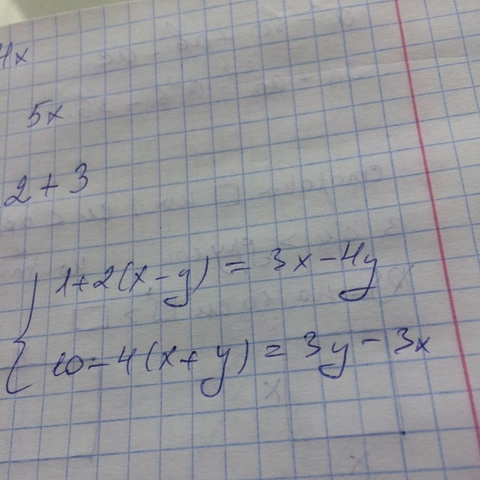 4x
5x
2 + 3
1+2(x-y) = 3x-4y
10-4(x+y) = 3y-3x